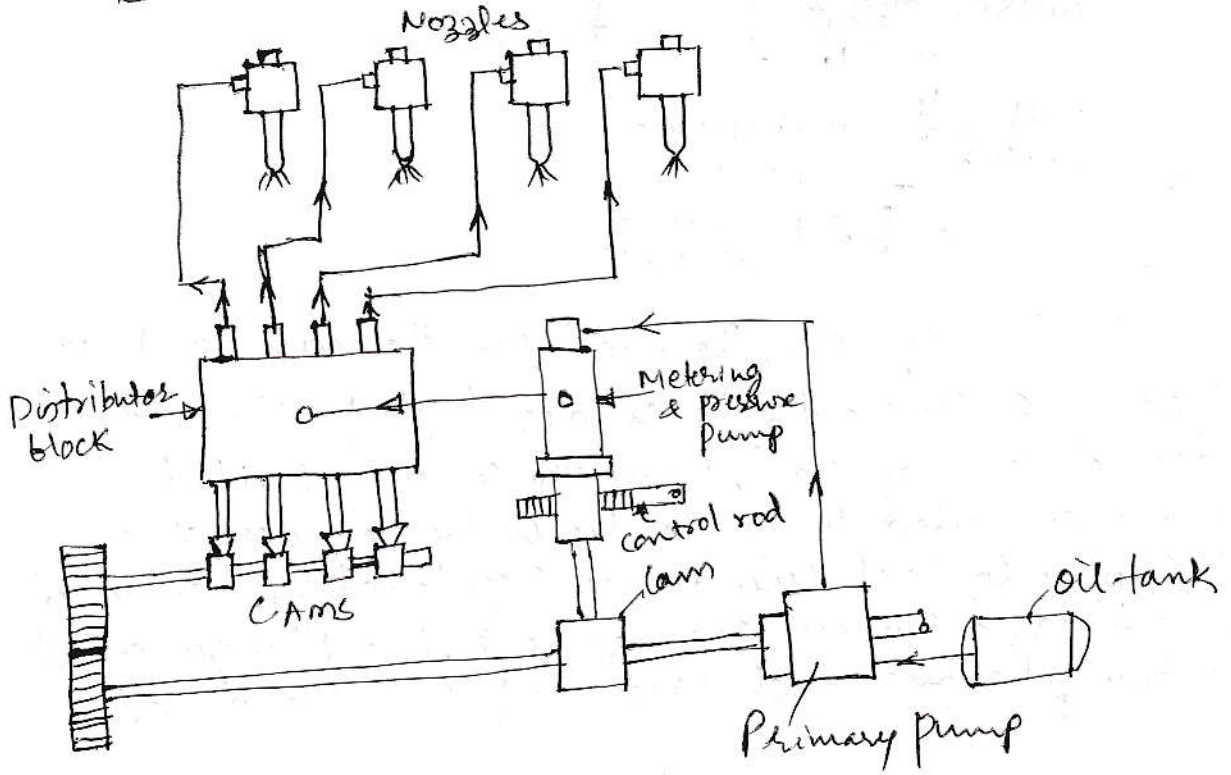 Nozzles
Distributor
block
Metering
& pressure
pump
control rod
Cam
CAMS
oil tank
Primary pump